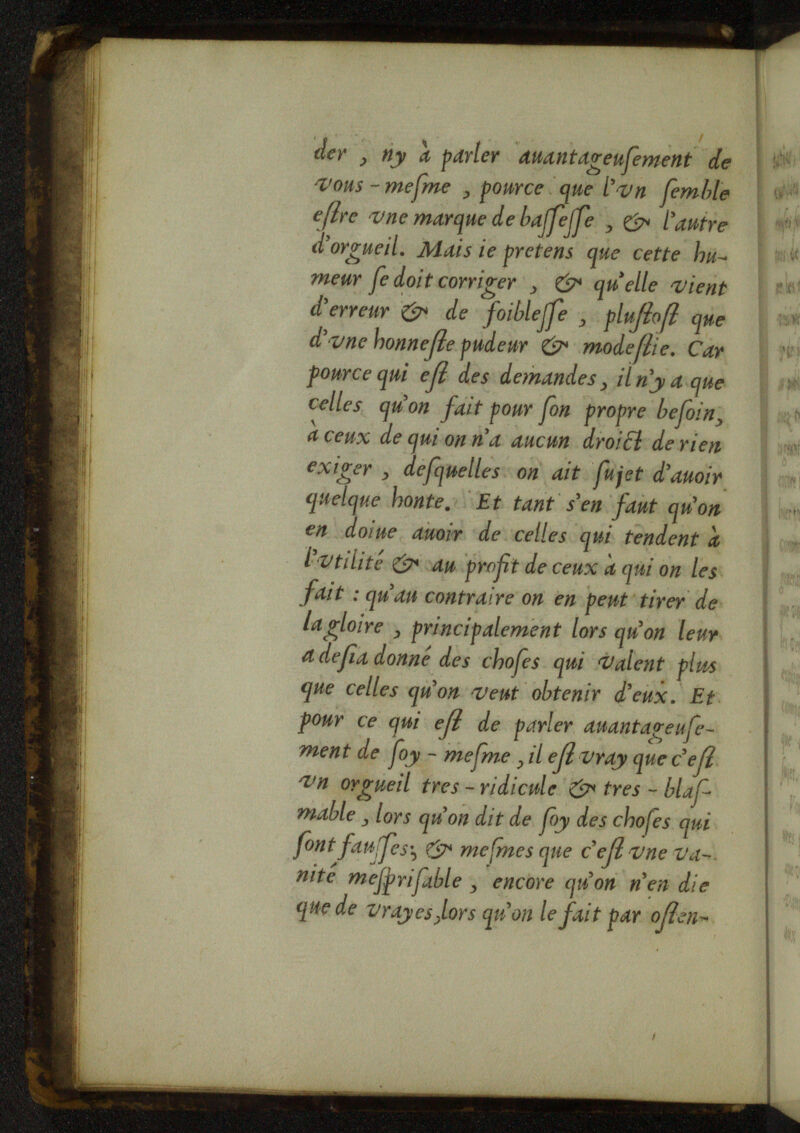 der , ny à parler auantageuſement de
vous-meſme , pource que l'vn ſemble
eſtre vne marque de baſſeſſe , & l'autre
d'orgueil. Mais ie pretens que cette hu-
meur ſe doit corriger , & qu'elle vient
d'erreur & de foibleſſe , pluſtoſt que
d'vne honneſte pudeur & modeſtie. Car
pource qui eſt des demandes, il n'y a que
celles qu'on fait pour ſon propre beſoin,
à ceux de qui on n'a aucun droict de rien
exiger , deſquelles on ait ſujet d'auoir
quelque honte. Et tant s'en faut qu'on
en doiue auoir de celles qui tendent à
l'vtilité & au profit de ceux à qui on les
fait : qu'au contraire on en peut tirer de
la gloire , principalement lors qu'on leur
a deſia donné des choſes qui valent plus
que celles qu'on veut obtenir d'eux. Et
pour ce qui eſt de parler auantageuſe-
ment de ſoy-meſme , il eſt vray que c'eſt
vn orgueil tres-ridicule & tres-blaſ-
mable , lors qu'on dit de ſoy des choſes qui
ſont fauſſes; & meſmes que c'eſt vne va-
nité meſpriſable , encore qu'on n'en die
que de vrayes, lors qu'on le fait par oſten-